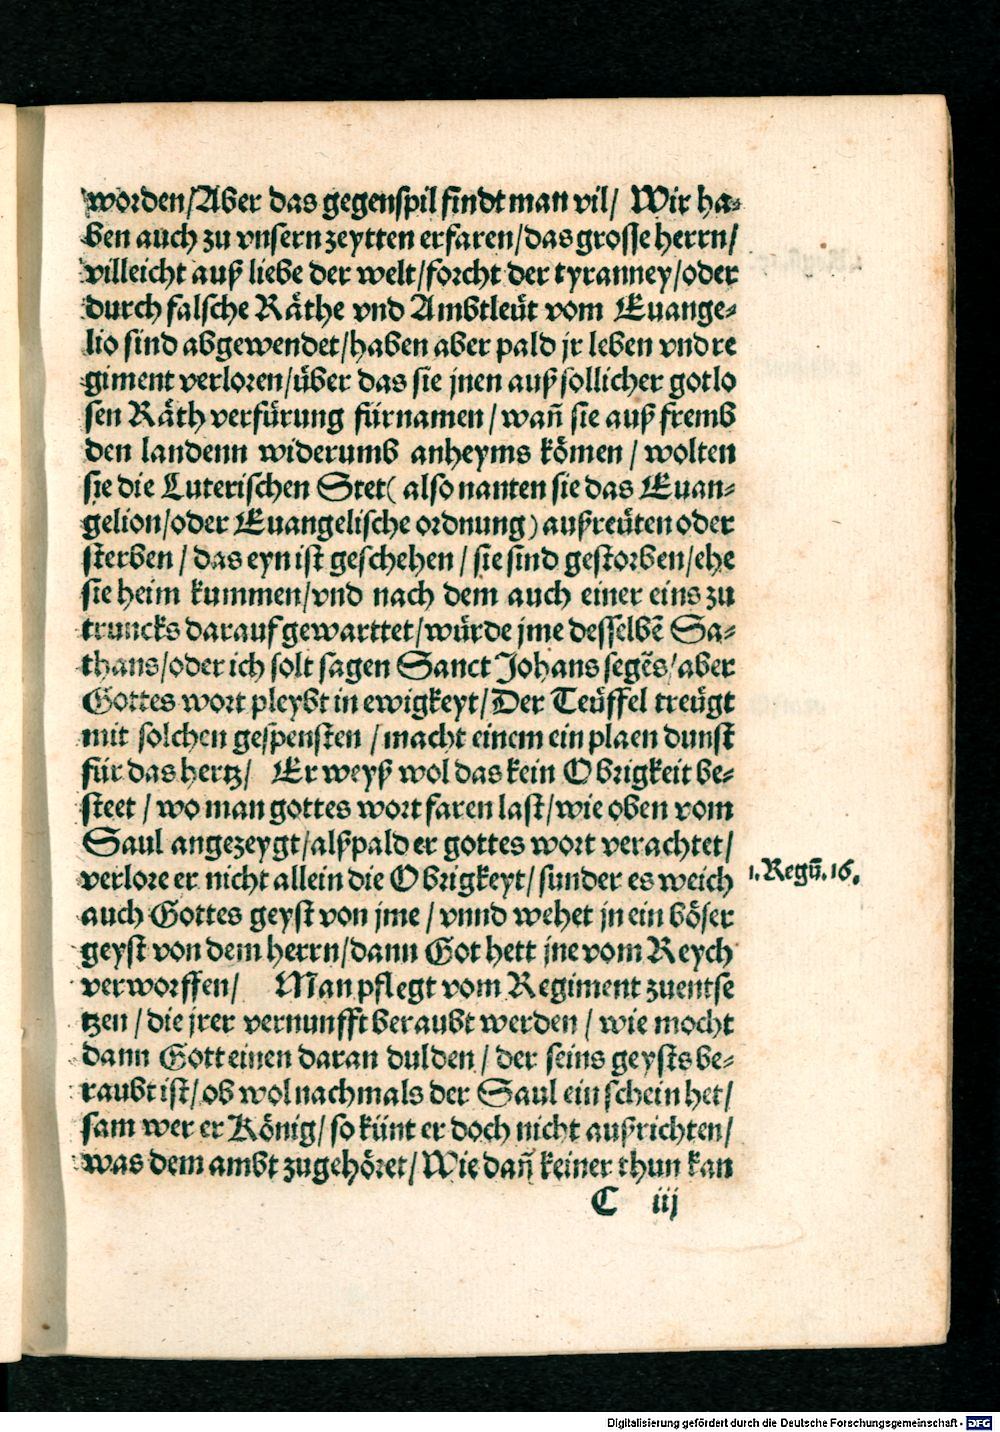 worden/Aber das gegenspil findt man vil/ Wir ha-
ben auch zu vnsern zeytten erfaren/das grosse herrn/
villeicht auß liebe der welt/forcht der tyranney/oder
durch falsche Räthe vnd Ambtleüt vom Euange-
lio sind abgewendet/haben aber pald jr leben vnd re
giment verloren/über das sie jnen auß sollicher gotlo
sen Räth verfürung fürnamen/wañ sie auß fremb
den landenn widerumb anheyms kömen/wolten
sie die Luterischen Stet( also nanten sie das Euan-
gelion/oder Euangelische ordnung) außreüten oder
sterben/das eyn ist geschehen/sie sind gestorben/ehe
sie heim kummen/vnd nach dem auch einer eins zu
truncks darauf gewarttet/würde jme desselbẽ Sa-
thans/oder ich solt sagen Sanct Johans segẽs/aber
Gottes wort pleybt in ewigkeyt/Der Teüffel treügt
mit solchen gespensten/macht einem ein plaen dunst
für das hertz/ Er weyß wol das kein Obrigkeit be-
steet/wo man gottes wort faren last/wie oben vom
Saul angezeygt/alßpald er gottes wort verachtet/
verlore er nicht allein die Obrigkeyt/sunder es weich
auch Gottes geyst von jme/vnnd wehet jn ein böser
geyst von dem herrn/dann Got hett jne vom Reych
verworffen/ Man pflegt vom Regiment zuentse
tzen/die jrer vernunfft beraubt werden/wie mocht
dann Gott einen daran dulden/der seins geysts be-
raubt ist/ob wol nachmals der Saul ein schein het/
sam wer er König/so künt er doch nicht außrichten/
was dem ambt zugehöret/Wie dañ keiner thun kan
1. Regũ. 16.
C iij
Digitalisierung gefördert durch die Deutsche Forschungsgemeinschaft - DFG